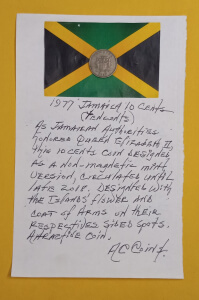 1977 JAMAICA 10 CENTS
(TEN CENTS)
AS JAMAICAN AUTHORITIES
HONORED QUEEN ELIZABETH II,
THIS 10 CENTS COIN DESIGNED
AS A NON-MAGNETIC MINT
VERSION, CIRCULATED UNTIL
LATE 2018. DESIGNATED WITH
THE ISLANDS FLOWER AND
COAT OF ARMS ON THEIR
RESPECTIVES SIDED SPOTS.
ATTRACTIVE COIN.
ACCOINS.